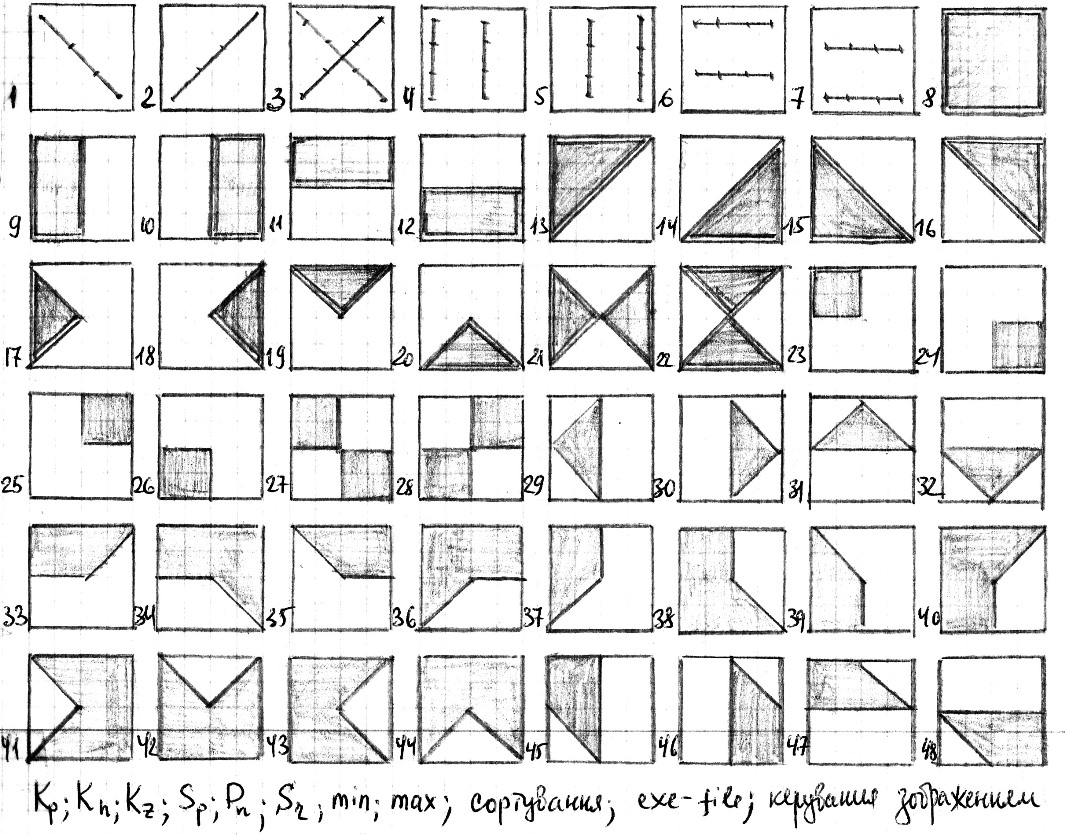 1 2 3 4 5 6 7 8
9 10 11 12 13 14 15 16
17 18 19 20 21 22 23 24
25 26 27 28 29 30 31 32
33 34 35 36 37 38 39 40
41 42 43 44 45 46 47 48
Kp; Kn; Kz; Sp; Pn; Sz; min; max; сортування; exe-file; керування зображенням